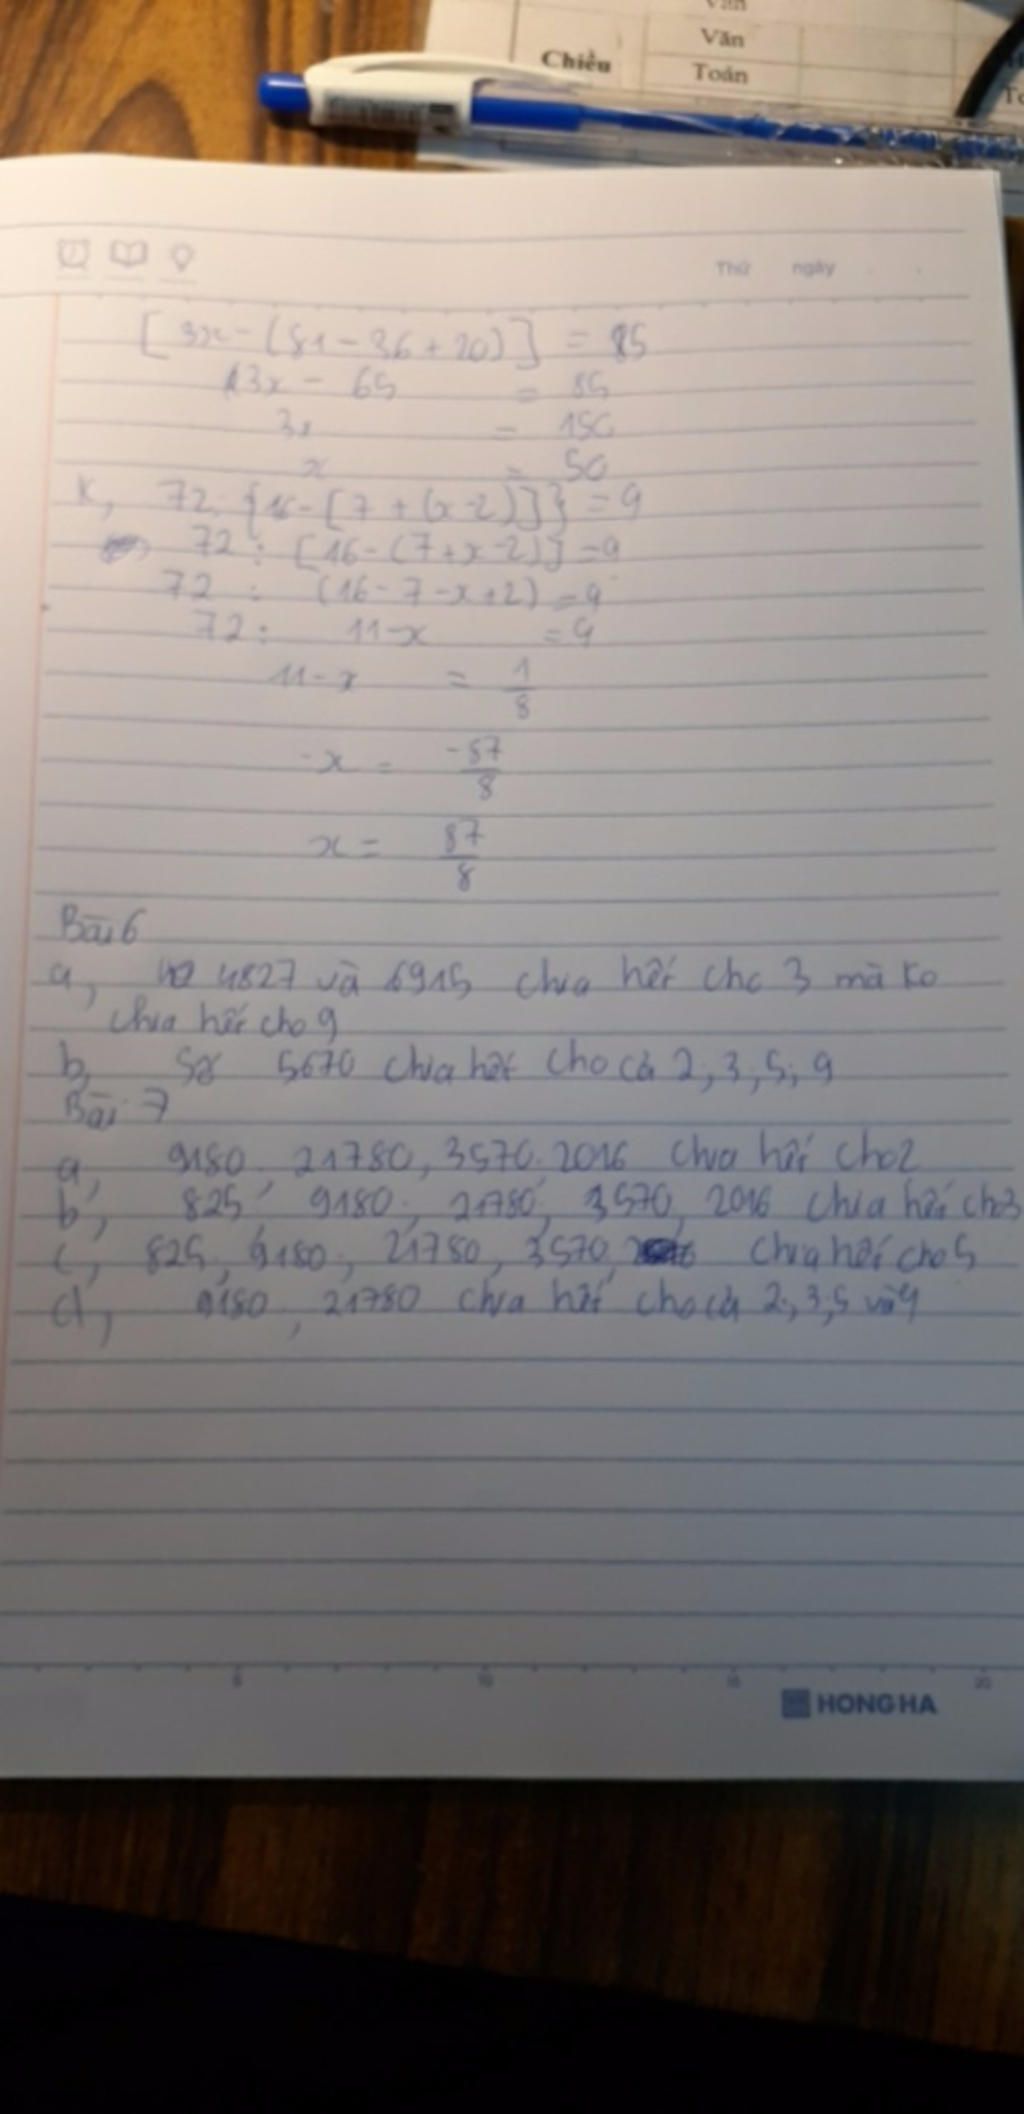 Văn
Chiều
Văn
Toán
Thứ ngày
[3x - (81 - 36 + 20)] = 85
3x - 65 = 85
3x = 150
x = 50
k, 72 : {16 - [7 + (x - 2)]} = 9
72 : [16 - (7 + x - 2)] = 9
72 : (16 - 7 - x + 2) = 9
72 : 11 - x = 9
11 - x = 1/8
-x = -87/8
x = 87/8
Bài 6
a, 4827 và 6915 chia hết cho 3 mà ko
chia hết cho 9
b, Số 5670 chia hết cho cả 2; 3; 5; 9
Bài 7
a, 9180, 21780, 3570, 2016 chia hết cho 2
b, 825, 9180, 21780, 3570, 2016 chia hết cho 3
c, 825, 9180, 21780, 3570, chia hết cho 5
d, 9180, 21780 chia hết cho cả 2, 3, 5 và 9
5 10 15 20
HONG HA